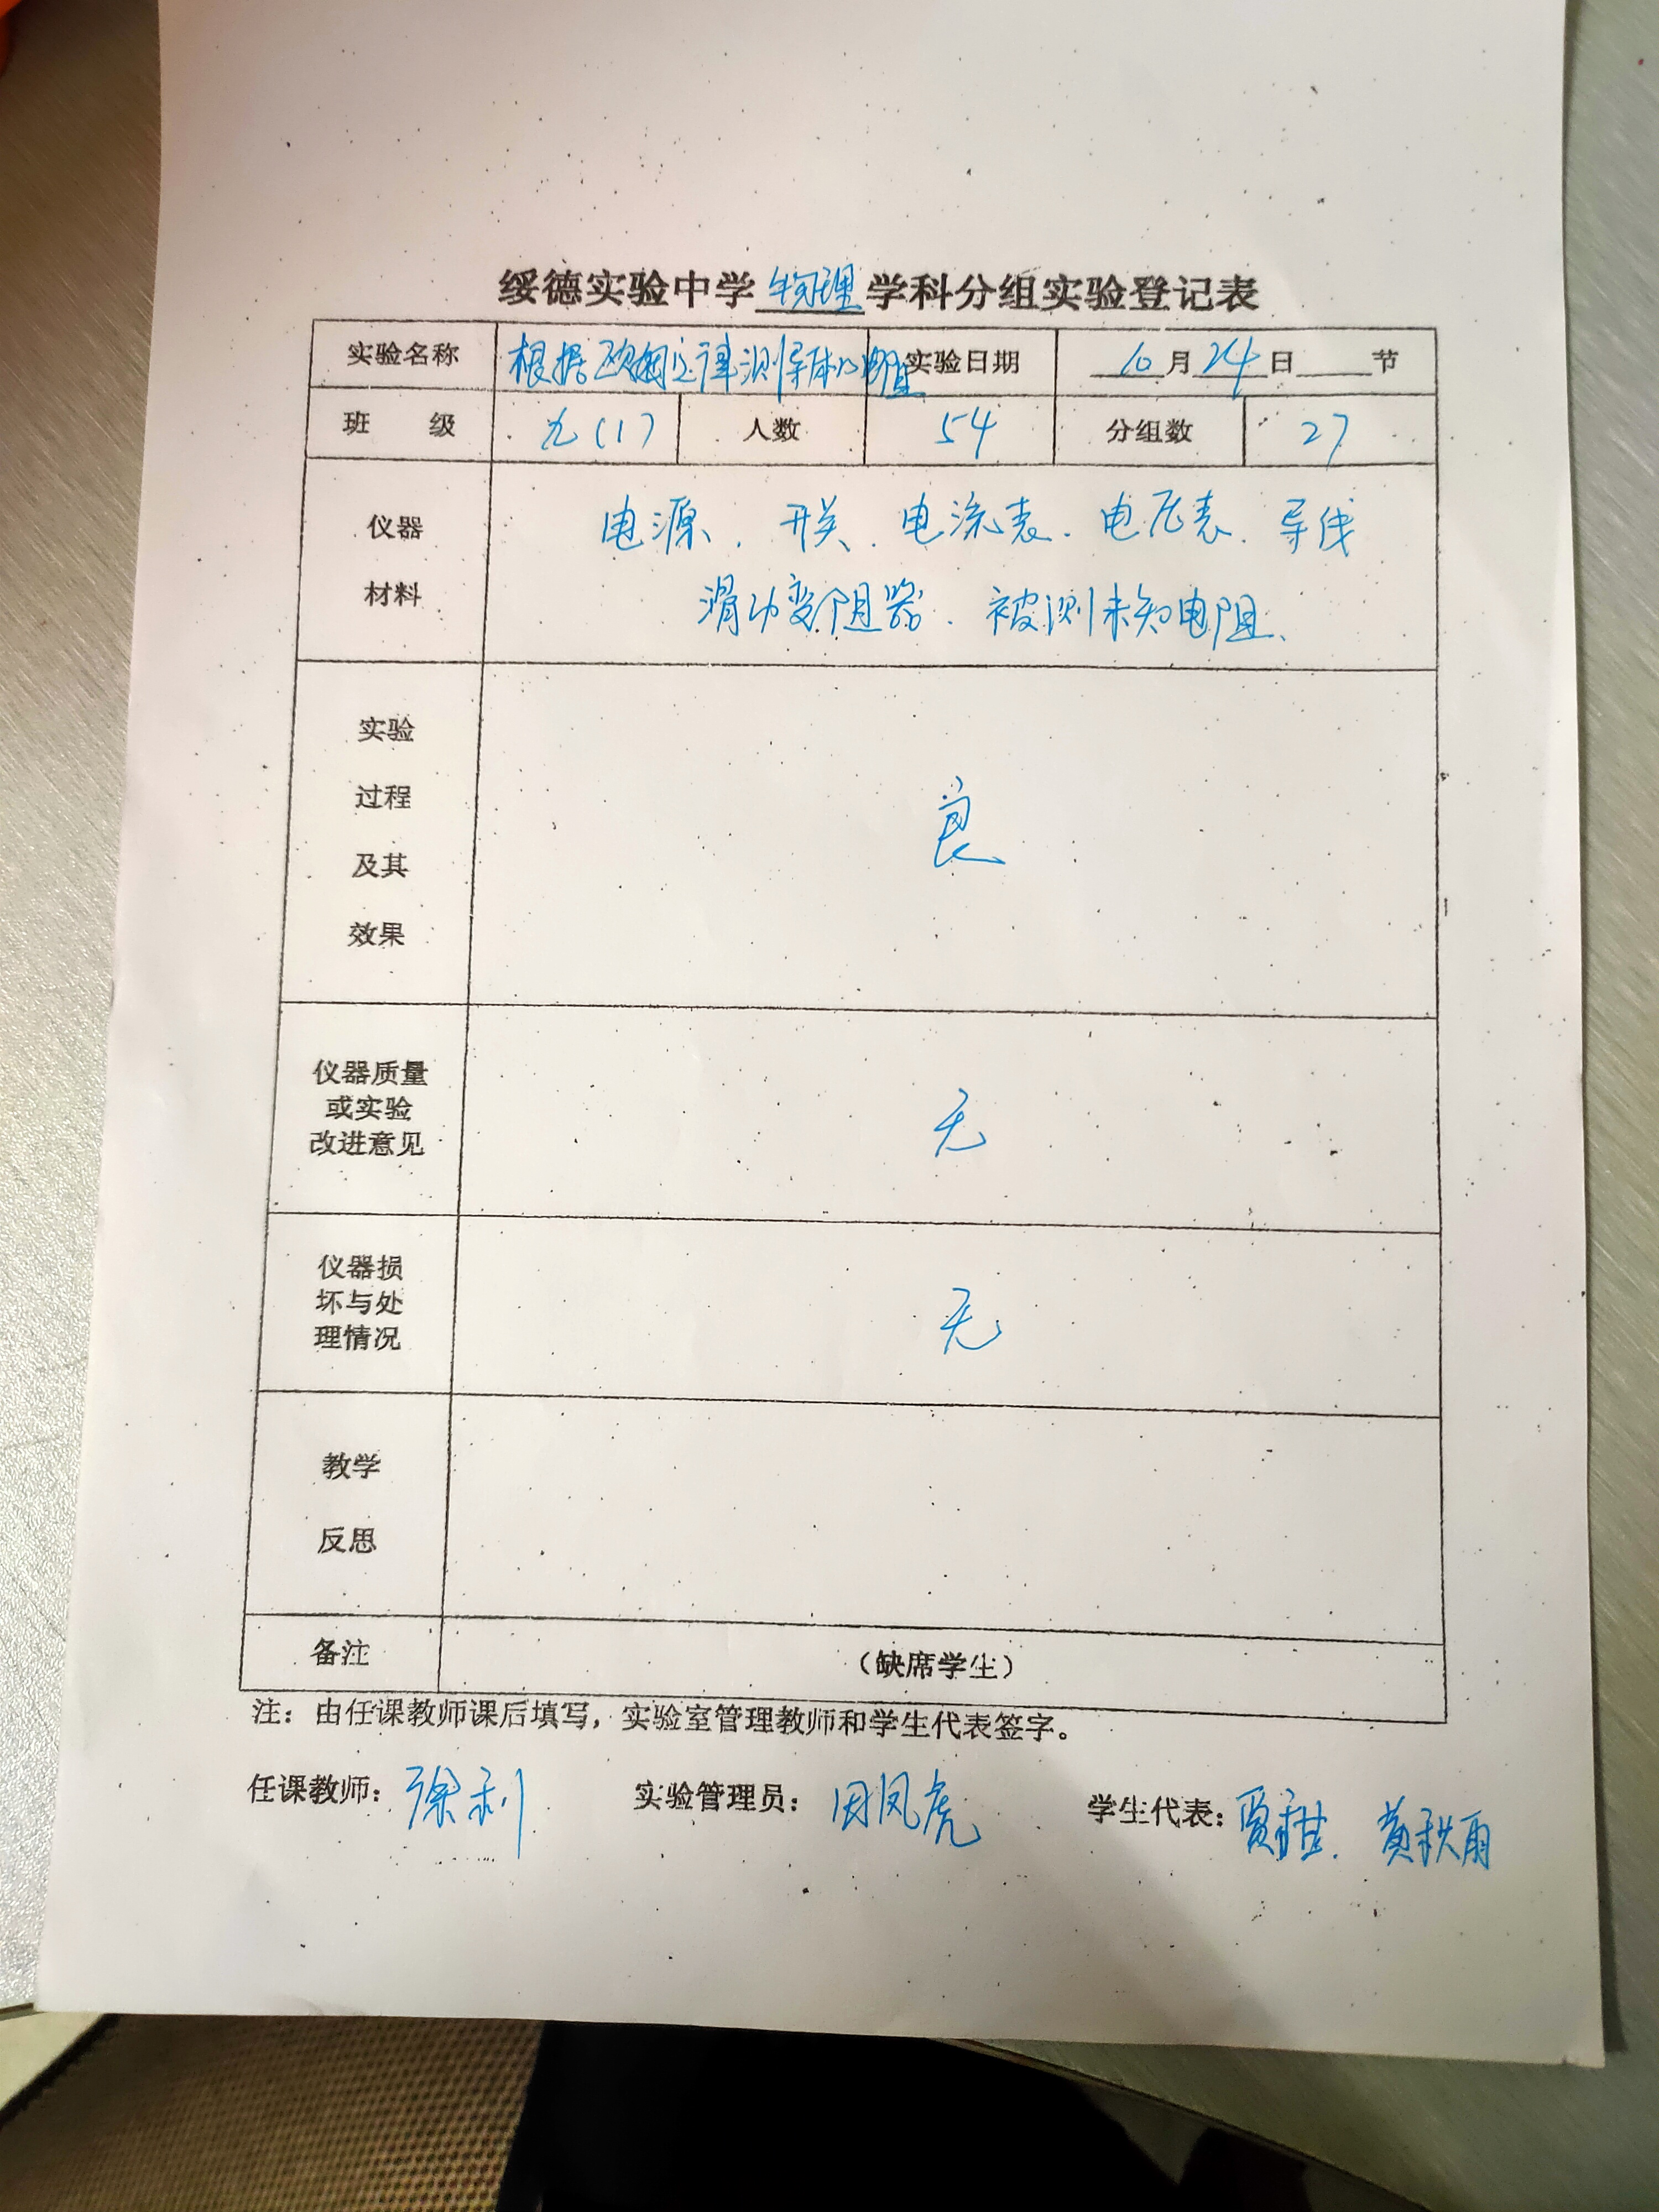 绥德实验中学物理学科分组实验登记表
实验名称 根据欧姆定律测导体的电阻 实验日期 10月24日 节
班 级 九(1) 人数 54 分组数 27
仪器 电源、开关、电流表、电压表、导线
材料 滑动变阻器、被测未知电阻、
实验
过程
及其
效果
良
仪器质量
或实验
改进意见
无
仪器损
坏与处
理情况
无
教学
反思
备注 (缺席学生)
注:由任课教师课后填写,实验室管理教师和学生代表签字。
任课教师:徐利 实验管理员:田凤虎 学生代表:贾甜、黄秋雨